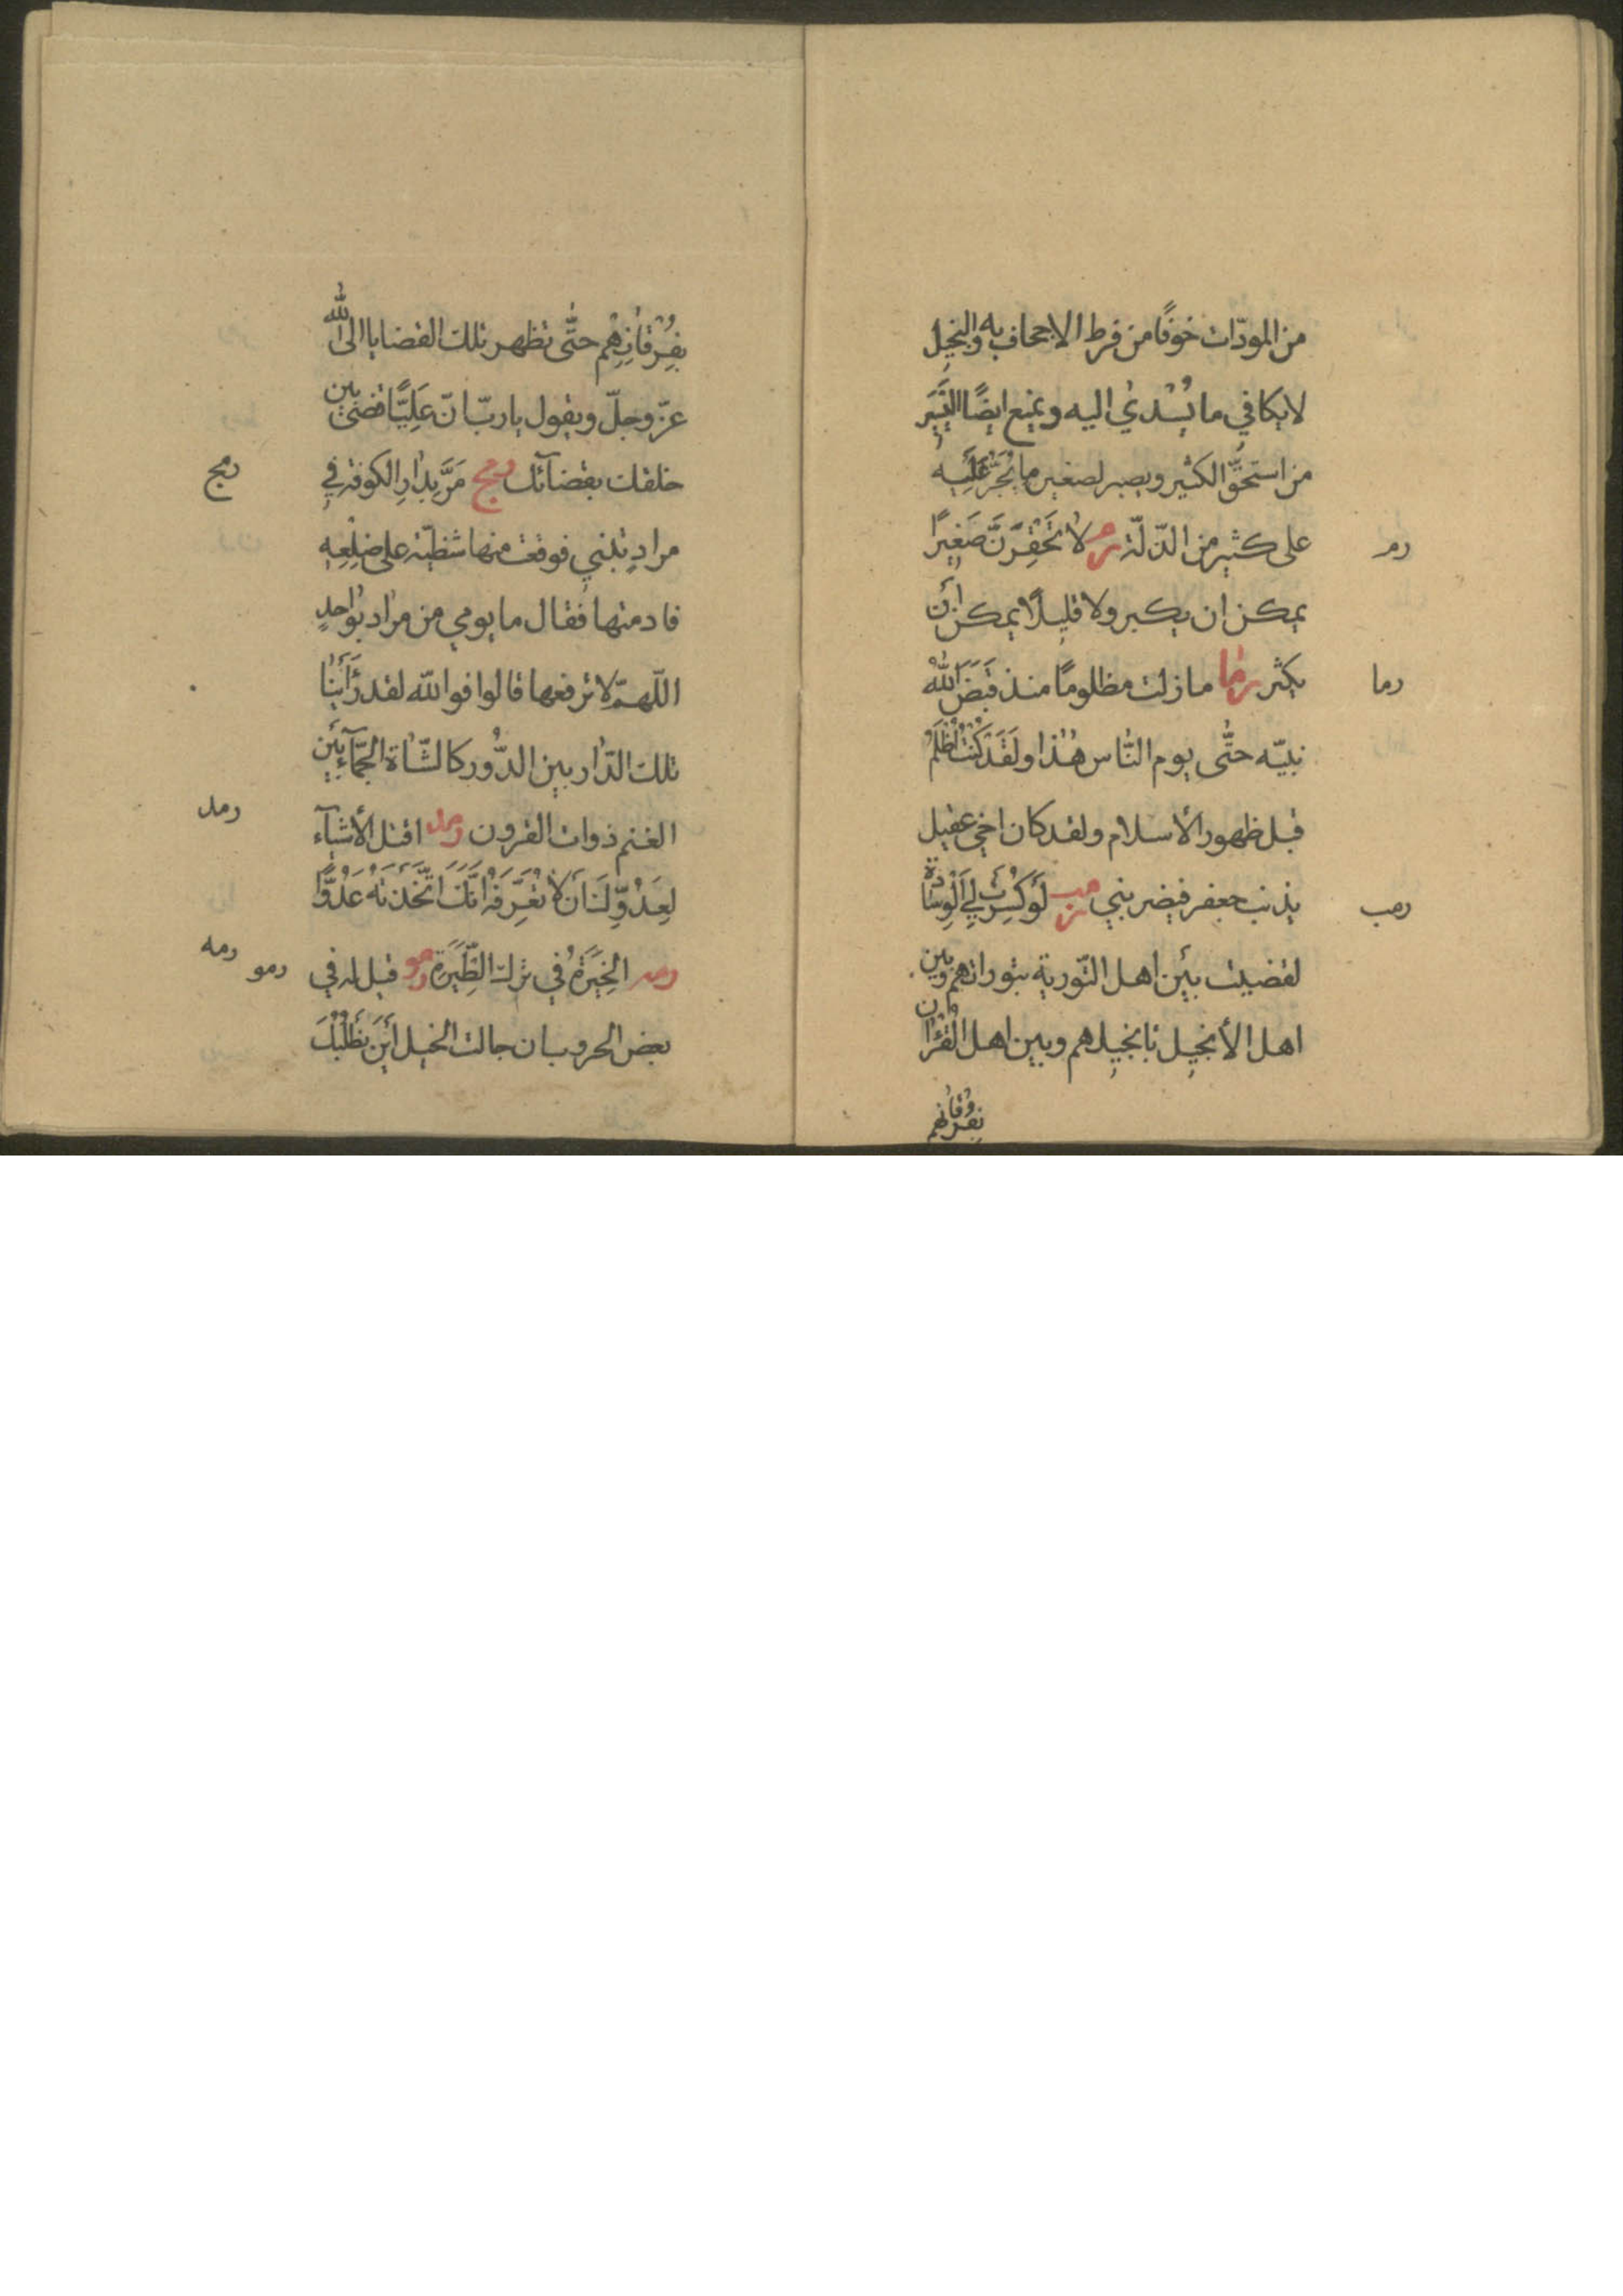 من المودّات خوفًا من فرط الاجحاف به والبخيل
لا يكافي ما يُسْدىٰ اليه و يمنع ايضًا اليَسِير
من استحقّ الكثير و يصبر لصغير ما يَجُرّ عَلَيه
رم
على كثير من الذلّة رم لا تَحْقِرَنَّ صَغيرًا
يمكن ان يكبر ولا قليلًا يمكن أن
رما
يكثر رما ما زلت مظلومًا منذ قَبَضَ اللّٰهُ
نبيّه حتّى يوم النّاس هٰذا ولَقَدْ كُنْتُ اُظْلَمُ
قبل ظهور الأسلام ولقد كان اخي عقيل
رمب
يذنب جعفر فيضربني رمب لَوْ كُسِرَتْ لِي الْوِسَادَة
لقضيت بَيْن اهل التّورية بتوراتهم وبين
اهل الأنجيل بانجيلهم وبين اهل القُرْآن
بفُرْقانهم
بِفُرْقَانِهِم حتّى تظهر تلك القضايا الى اللّٰه
عزّ وجلّ و يقول يا ربّ انّ عَلِيًّا قضىٰ بين
رمج
خلقك بقضآئك رمج مَرَّ بِدارِ الكوفة في
مرادٍ تبنى فوقعت منها شظيّة على ضِلْعِه
فادمتها فقال ما يومي من مراد بواحدٍ
اللّهمّ لا ترفعها قالوا فوالله لقد رَأَيْنَا
تلك الدّار بين الدُّور كالشّاة الجمّآء بَيْن
رمد
الغنم ذوات القرون رمد اقتل الأشيآء
لِعَدُوِّكَ اَنْ لا تُعَرِّفَهُ اَنَّكَ اتَّخَذْتَهُ عَدُوًّا
رمه رمو
رمه الخِيَرَةُ في ترك الطِّيَرَة رمو قيل له في
بعض الحروب ان جالت الخيل أَيْنَ نَطْلُبُكَ